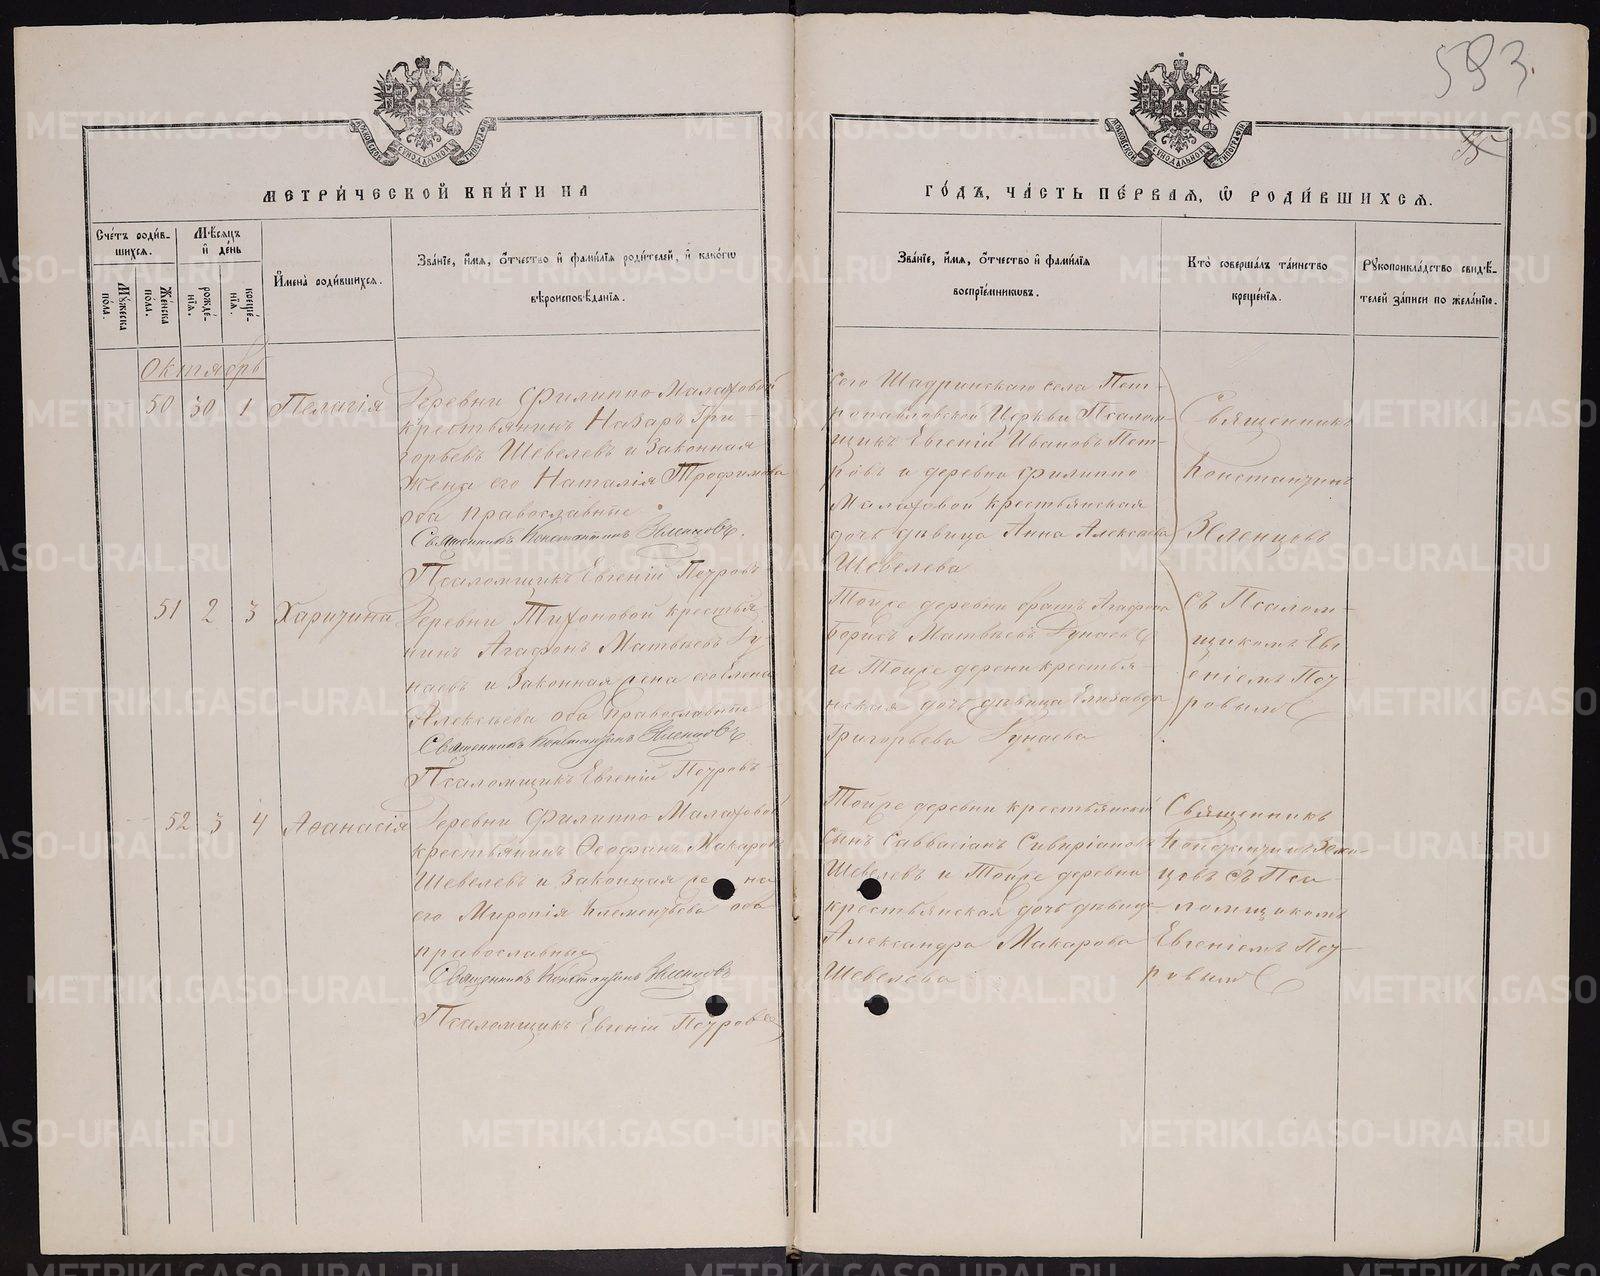 593.
МОСКОВСКОЙ СѴНОДАЛЬНОЙ ТИПОГРАФІИ
МОСКОВСКОЙ СѴНОДАЛЬНОЙ ТИПОГРАФІИ
МЕТРИ́ЧЕСКОЙ КНИ́ГИ НА
ГО́ДЪ, ЧА́СТЬ ПЕ́РВАЯ, Ѡ РОДИ́ВШИХСЯ.
Сче́тъ роди́в-
шихся.
Мѣсяцъ
и де́нь
Му́жеска
пола.
Же́нска
пола.
рожде́-
нія.
креще́-
нія.
Имена роди́вшихся.
Зва́ніе, и́мя, о́тчество и фами́лія роди́телей, и како́гѡ
вѣроисповѣ́данія.
Зва́ніе, и́мя, о́тчество и фами́лія
воспріе́мниковъ.
Кто̀ соверша́лъ та́инство
креще́нія.
Рукоприкла́дство свидѣ́-
телей за́писи по жела́нію.
Октябрь
50 30 1 Пелагія
Деревни Филиппо Малаховой
крестьянинъ Назаръ Гри-
горьевъ Шевелевъ и Законная
жена его Наталія Трофимова
оба православные
Священникъ Константинъ Зеленцовъ.
Псаломщикъ Евгеній Петровъ
сего Шадринскаго села Пет-
ропавловской Церкви Псалом-
щикъ Евгеній Ивановъ Пет-
ровъ и деревни Филиппо
Малаховой крестьянская
дочь дѣвица Анна Алексѣева
Шевелева
Священникъ
Константинъ
Зеленцовъ
51 2 3 Харитина
Деревни Тихоновой крестья
нинъ Агафонъ Матвѣевъ Ду
наевъ и Законная жена его Елена
Алексѣева оба православные
Священникъ Константинъ Зеленцовъ
Псаломщикъ Евгеній Петровъ
Тойже деревни братъ Агафона
Борисъ Матвѣевъ Дунаевъ
и Тойже деревни крестья-
нская дочь дѣвица Елизавета
Григорьева Дунаева
съ Псалом-
щикомъ Евг
еніемъ Пет
ровымъ
52 3 4 Аѳанасія
Деревни Филиппо Малаховой
крестьянинъ Ѳеофанъ Макаровъ
Шевелевъ и Законная жена
его Миропія Климентьева оба
православные
Священникъ Константинъ Зеленцовъ
Псаломщикъ Евгеній Петровъ
Тойже деревни крестьянскій
сынъ Савваcіанъ Сивиріановъ
Шевелевъ и Тойже деревни
крестьянская дочь дѣвица
Александра Макарова
Шевелева
Священникъ
Константинъ Зелен-
цовъ съ Пса
ломщикомъ
Евгеніемъ Пет-
ровымъ
METRIKI.GASO-URAL.RU